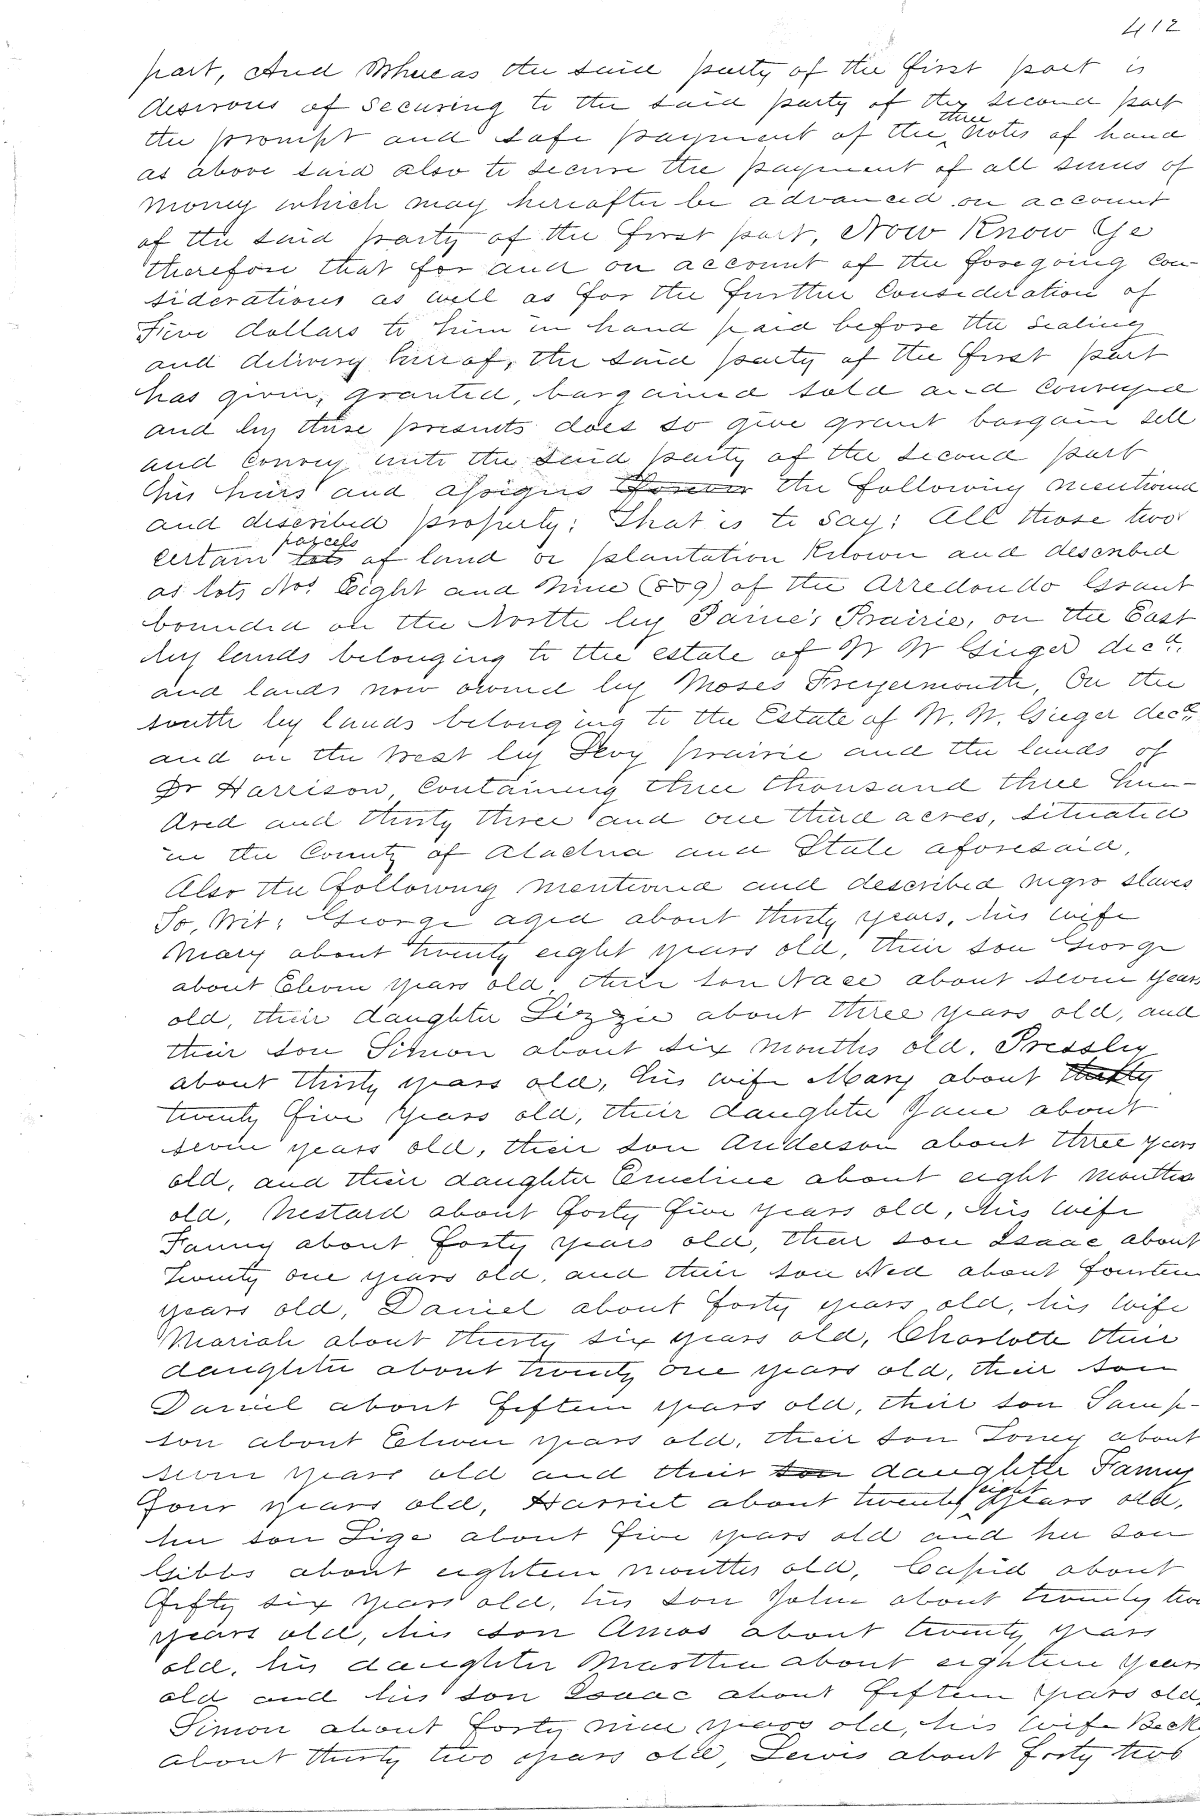 412
part, And Whereas the said party of the first part is
desirous of securing to the said party of the second part
the prompt and safe payment of the three notes of hand
as above said also to secure the payment of all sums of
money which may hereafter be advanced on account
of the said party of the first part, Now Know Ye
therefore that for and on account of the foregoing con-
siderations as well as for the further consideration of
Five dollars to him in hand paid before the sealing
and delivery hereof, the said party of the first part
has given, granted, bargained sold and conveyed
and by these presents does so give grant bargain sell
and convey unto the said party of the second part
his heirs and assigns forever the following mentioned
and described property; That is to say; All those two
certain lots parcels of land or plantation Known and described
as lots Nos. Eight and Nine (8&9) of the Arredondo Grant
bounded on the North by Paine's Prairie, on the East
by lands belonging to the estate of W W Gieger decd.
and lands now owned by Moses Freyermouth, On the
south by lands belonging to the Estate of W. W. Gieger decd.
and on the West by Levy prairie and the lands of
Dr Harrison, Containing three thousand three hun-
dred and thirty three and one third acres, situated
in the County of Alachua and State aforesaid.
Also the following mentioned and described negro slaves
To, Wit: George aged about thirty years, his wife
Mary about twenty eight years old, their son George
about Eleven years old, their son Nace about seven years
old, their daughter Lizzie about three years old, and
their son Simon about six months old. Pressley
about thirty years old, his wife Mary about thirty
twenty five years old, their daughter Jane about
seven years old, their son Anderson about three years
old, and their daughter Emeline about eight months
old, Mestard about forty five years old, his wife
Fanny about forty years old, their son Isaac about
twenty one years old, and their son Ned about fourteen
years old, Daniel about forty years old, his wife
Mariah about thirty six years old, Charlotte their
daughter about twenty one years old, their son
Daniel about fifteen years old, their son Samp-
son about Eleven years old, their son Toney about
seven years old and their son daughter Fanny
four years old, Harriet about twenty eight years old,
her son Lige about five years old and her son
Gibbs about eighteen months old, Cupid about
fifty six years old, his son John about twenty two
years old, his son Amos about twenty years
old, his daughter Martha about eighteen years
old and his son Isaac about fifteen years old,
Simon about forty nine years old, his wife Beck
about thirty two years old, Lewis about forty two